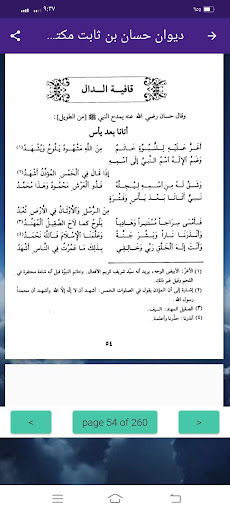 ٩:٣٧
ديوان حسان بن ثابت مكتـ...
قافية الدال
وقال حسان رضي الله عنه يمدح النبي ﷺ [من الطويل]:
أتانا بعد يأس
أغر عليه للنبوة خاتم من الله مشهود يلوح ويشهد (١)
وضم الإله اسم النبي إلى اسمه إذا قال في الخمس المؤذن أشهد (٢)
وشق له من اسمه ليجله فذو العرش محمود وهذا محمد
نبي أتانا بعد يأس وفترة من الرسل والأوثان في الأرض تعبد
فأمسى سراجا مستنيرا وهاديا يلوح كما لاح الصقيل المهند (٣)
وأنذرنا نارا وبشر جنة وعلمنا الإسلام فالله نحمد (٤)
وأنت إله الخلق ربي وخالقي بذلك ما عمرت في الناس أشهد
(١) الأغر: الأبيض الوجه، يريد أنه سيد شريف كريم الأفعال. وخاتم النبوة قيل أنه شامة محتفرة في
اللحم وقيل غير ذلك.
(٢) إشارة إلى أن المؤذن يقول في الصلوات الخمس: أشهد أن لا إله إلا الله وأشهد أن محمدا
رسول الله.
(٣) الصقيل المهند: السيف.
(٤) أنذرنا: حذرنا وأعلمنا.
٥٤
< page 54 of 260 >